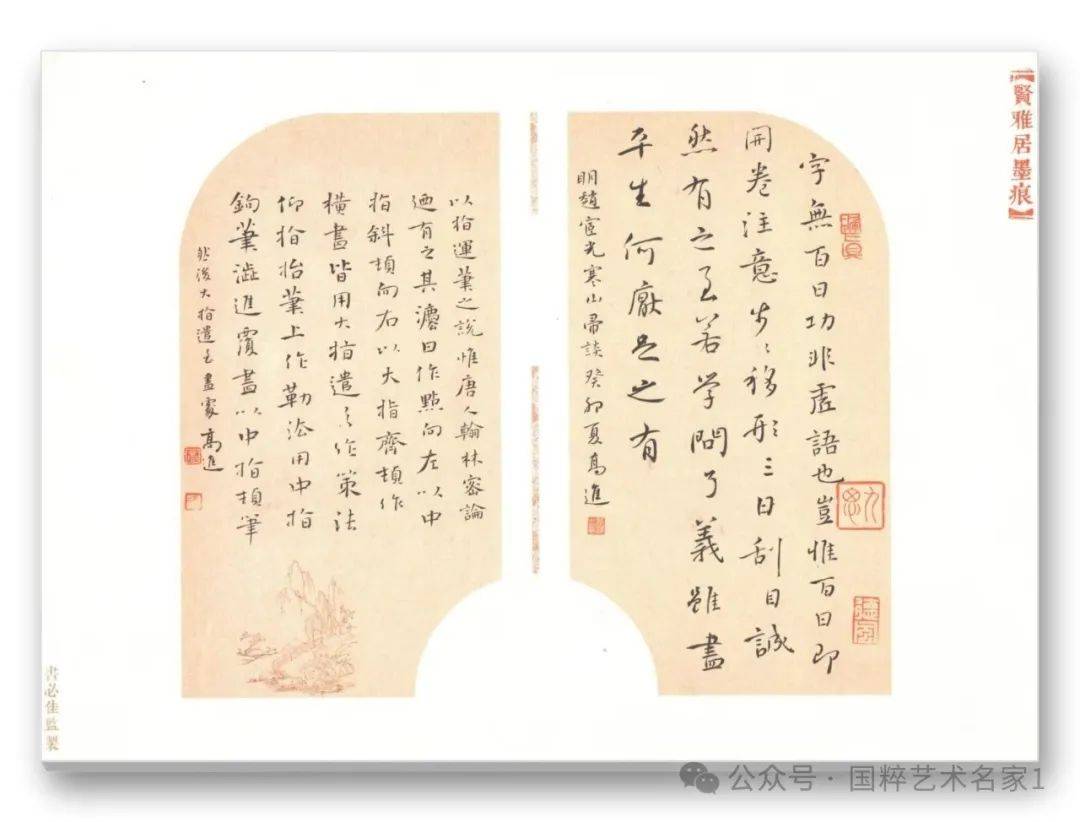 【賢雅居墨痕】
字無百日功非虛語也豈惟百日即
開卷注意步〻移形三日刮目誠
然有之至若学問了義雖盡
平生何厭足之有
明趙宧光寒山帚談癸卯夏高進
以指運筆之說惟唐人翰林密論
迺有之其濃曰作點向左以中
指斜頓向右以大指齊頓作
橫畫皆用大指遣之作策法
仰指抬筆上作勒法用中指
鉤筆澁進覆畫以中指頓筆
然後大指遣至盡處高進
書必佳監製
公众号·国粹艺术名家1